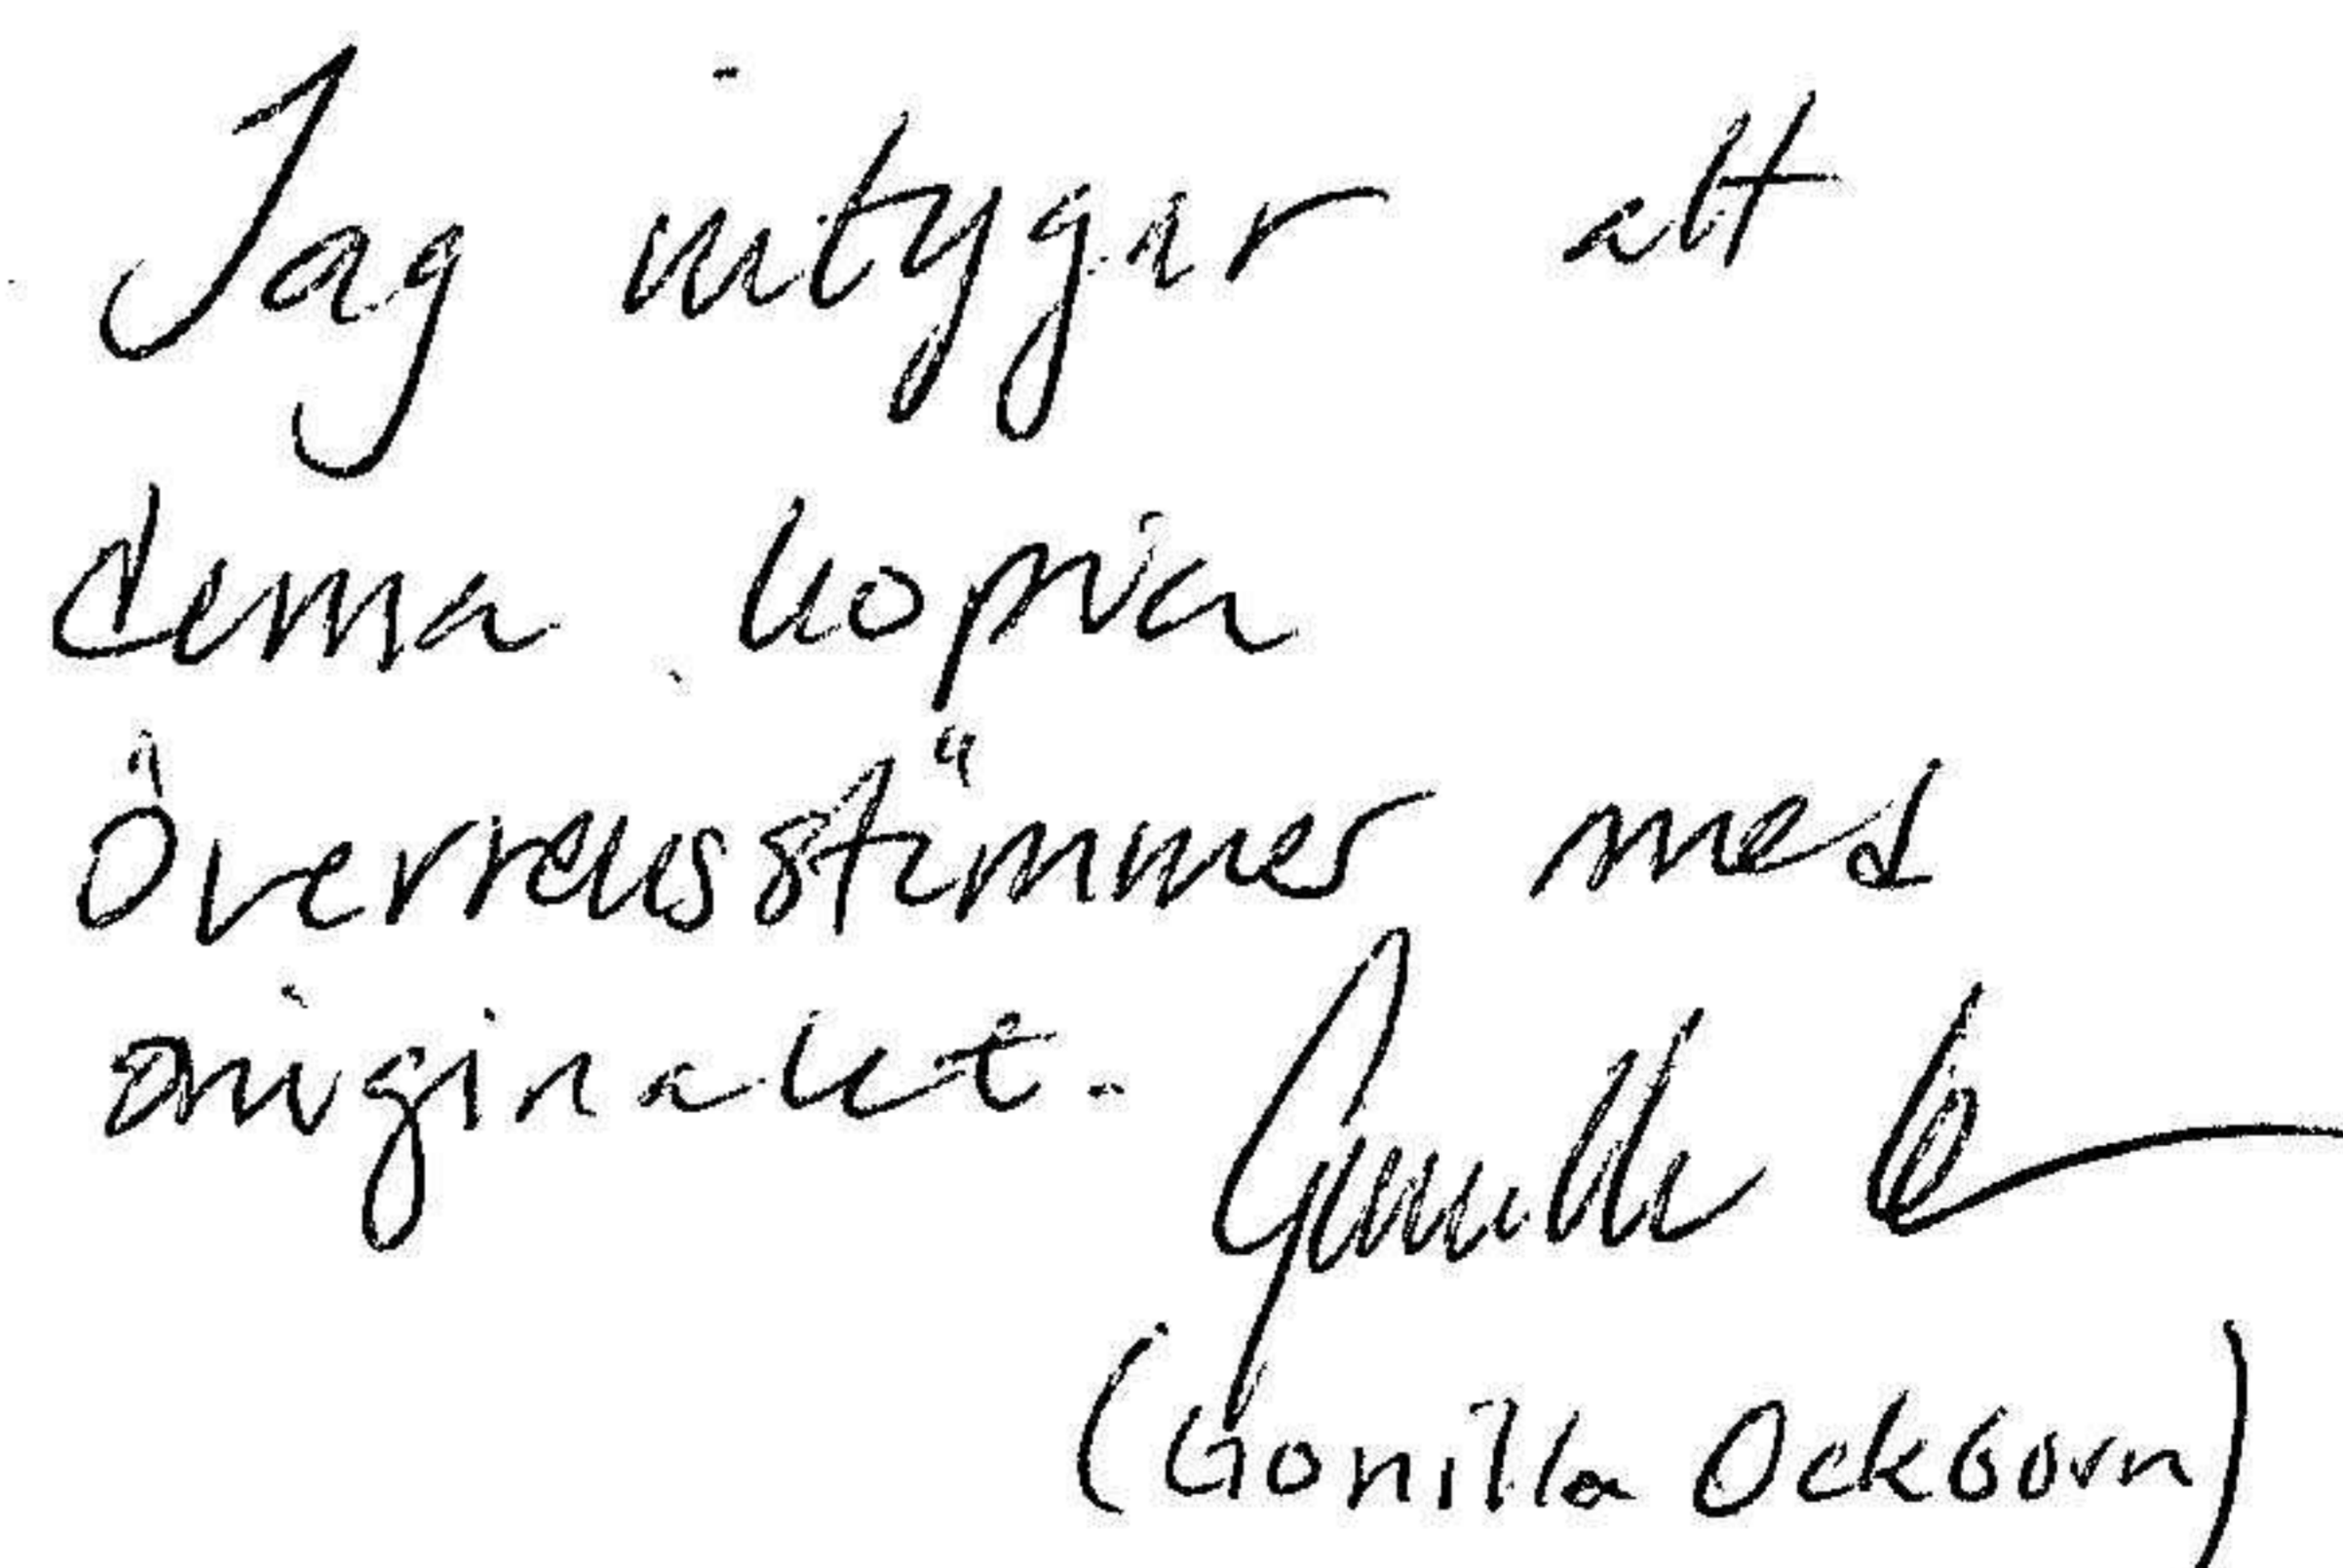 Jag intygar att
denna kopia
överrensstämmer med
originalet.
Gunilla
(Gunilla Ockborn)